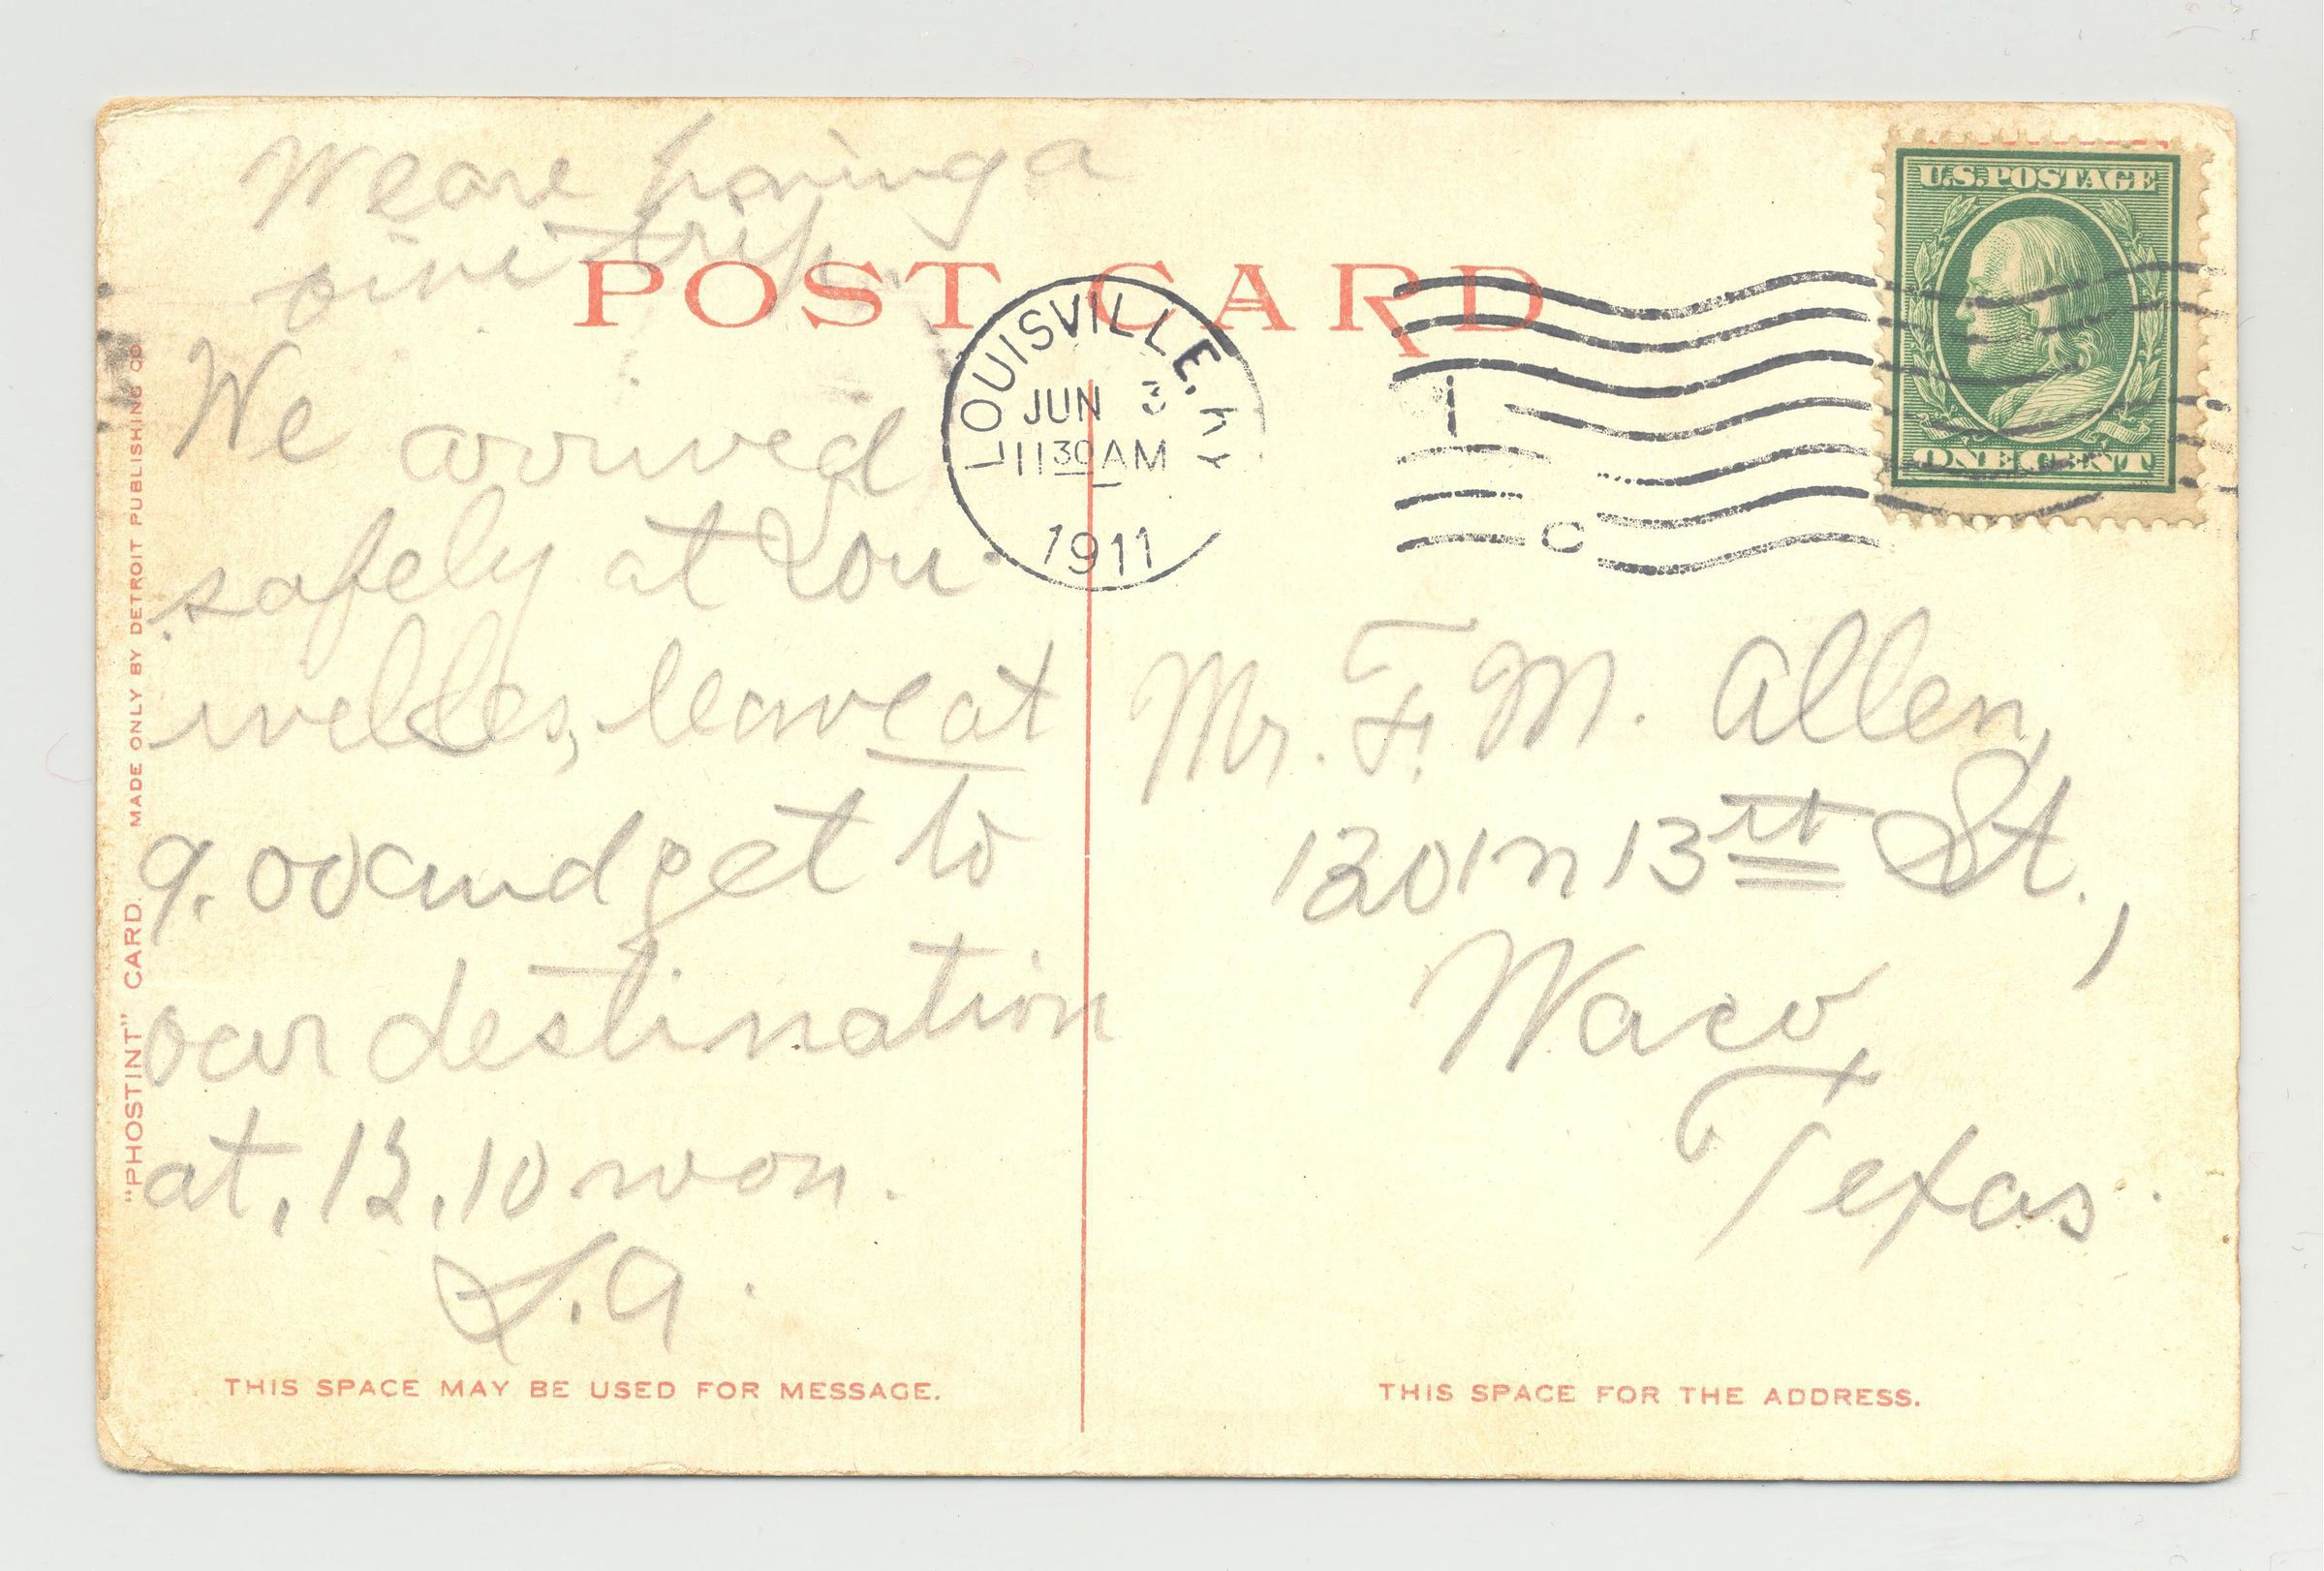 We are having a
nice trip
POST CARD
U.S. POSTAGE
ONE CENT
LOUISVILLE, KY.
JUN 3
11 30 AM
1911
We arrived
safely at Lou-
, leave at
9.00 and get to
our destination
at, 12,10 noon.
L.A.
THIS SPACE MAY BE USED FOR MESSAGE.
"PHOSTINT" CARD. MADE ONLY BY DETROIT PUBLISHING CO.
Mr. F. M. Allen,
1301 n 13 St.,
Waco,
Texas.
THIS SPACE FOR THE ADDRESS.